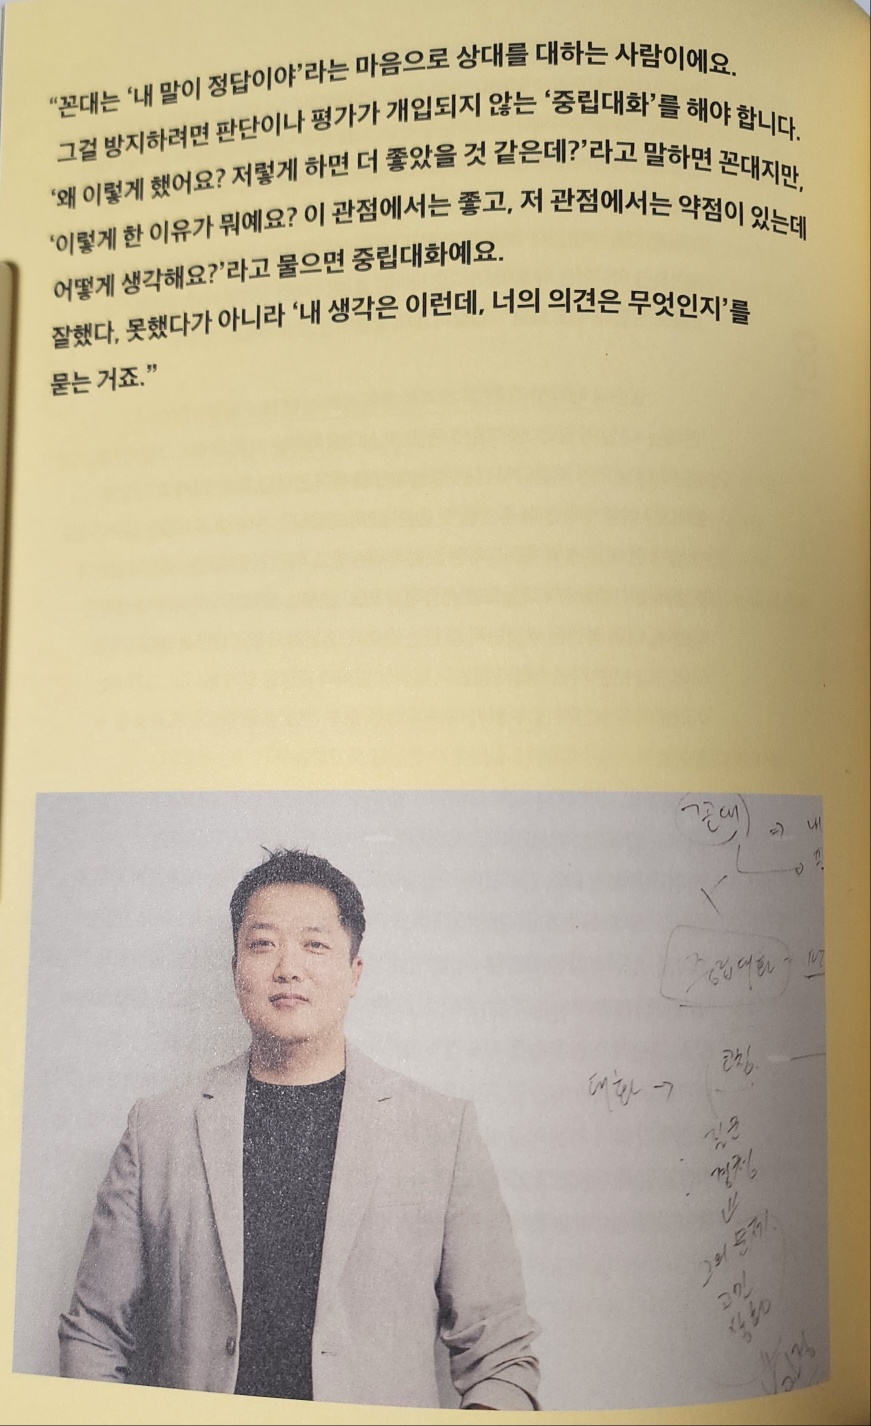 “꼰대는 ‘내 말이 정답이야’라는 마음으로 상대를 대하는 사람이에요.
그걸 방지하려면 판단이나 평가가 개입되지 않는 ‘중립대화’를 해야 합니다.
‘왜 이렇게 했어요? 저렇게 하면 더 좋았을 것 같은데?’라고 말하면 꼰대지만,
‘이렇게 한 이유가 뭐예요? 이 관점에서는 좋고, 저 관점에서는 약점이 있는데
어떻게 생각해요?’라고 물으면 중립대화예요.
잘했다, 못했다가 아니라 ‘내 생각은 이런데, 너의 의견은 무엇인지’를
묻는 거죠.”
꼰대 → 내
중립대화
코칭
대화 →
질문
경청
그의 문제
고민
상황